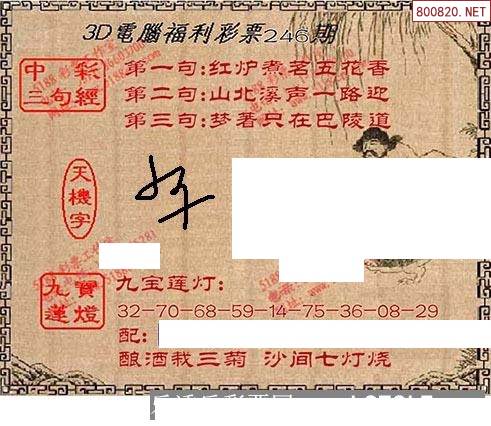 800820.NET
3D電腦福利彩票246期
中彩三句經
第一句:红炉煮茗五花香
第二句:山北溪声一路迎
第三句:梦著只在巴陵道
天機字
九寶蓮燈
九宝莲灯:
32-70-68-59-14-75-36-08-29
配:
酿酒栽三菊 沙间七灯烧